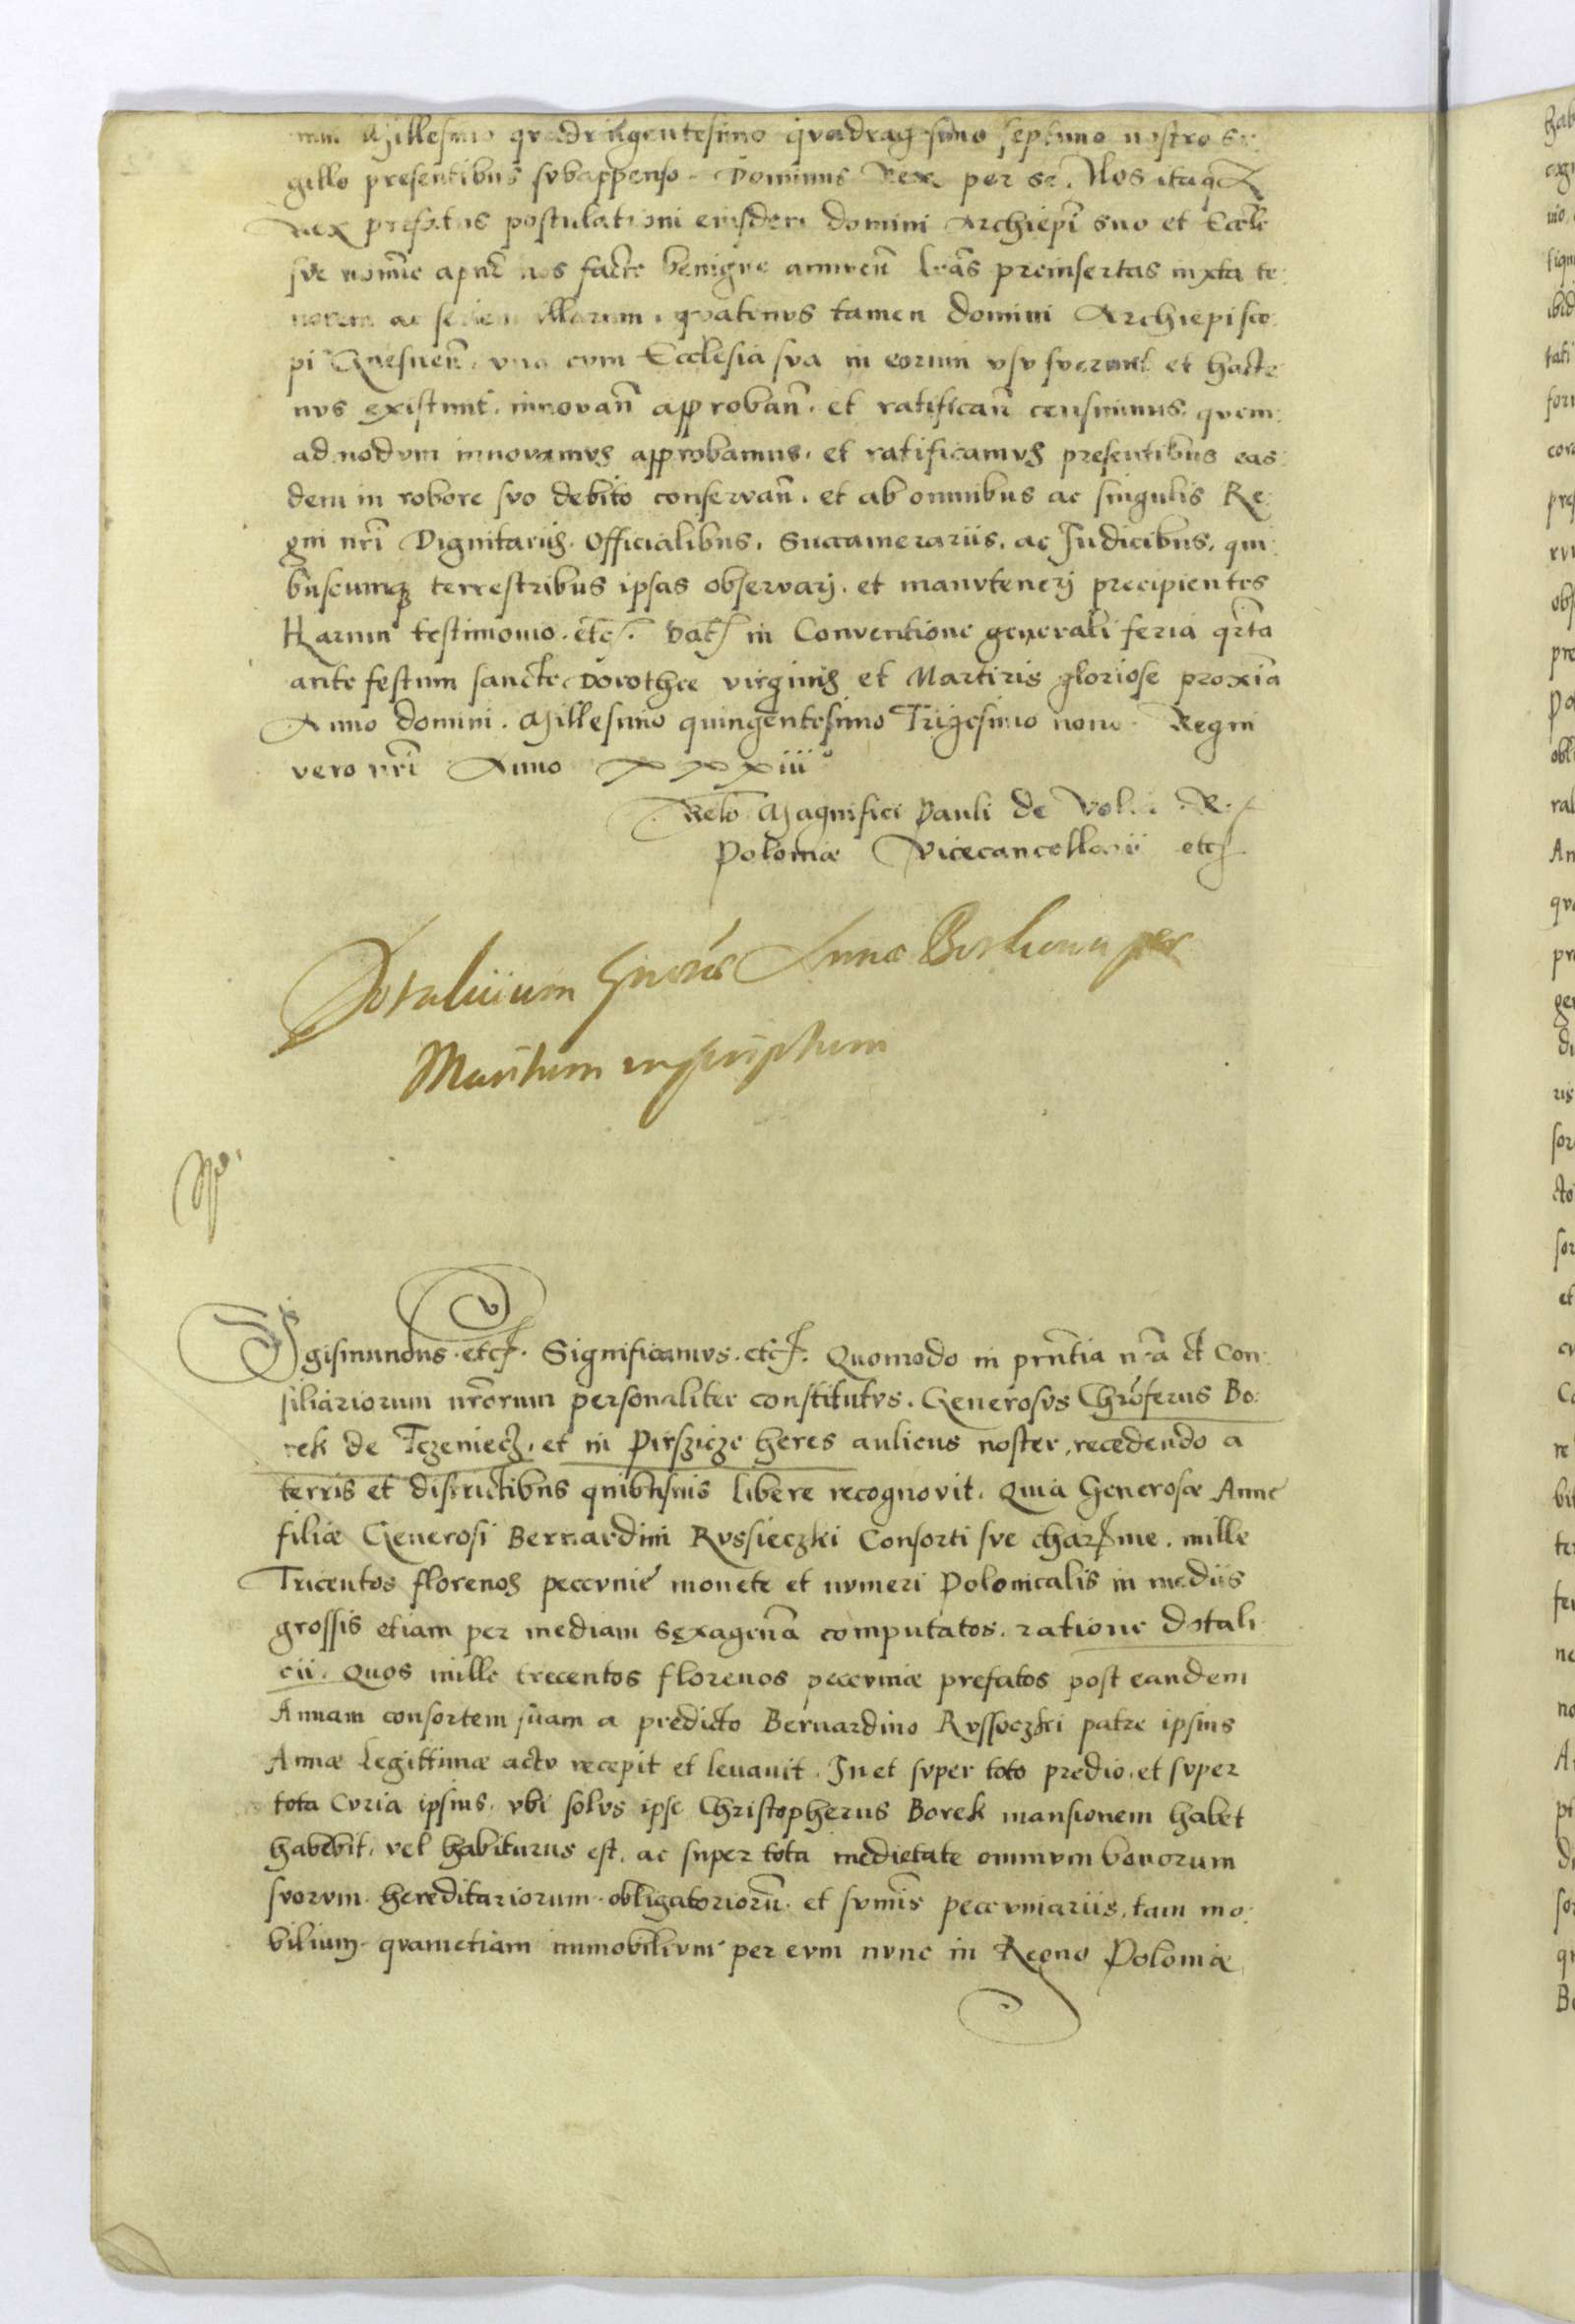 Millesimo quadringentesimo quadragesimo septimo nostro si:
gillo presentibus subappenso. Dominus Rex per se. Nos itaq
Rex prefatus postulationi eiusdem domini Archiepi suo et Eccle
sve nomie apud nos facte benigne annueñ lrãs preinsertas iuxta te:
norem ac seriem illarum, qvatenvs tamen domini Archiepisco:
pi Gnesneñ. vna cvm Ecclesia sva in eorum vsv fverunt et hacte
nvs existunt. innovañ approbañ. et ratificañ censuimus. qvem:
admodvm innovamvs approbamus. et ratificamvs presentibus eas:
dem in robore svo debito conservañ. et ab omnibus ac singulis Re:
gni nri Dignitariis. Officialibus. Succamerariis. ac Judicibus. qui:
buscumq terrestribus ipsas observarj. et manvtenerj precipientes
Harum testimonio. etc. Dat in Conventione generali feria qrta
ante festum sancte Dorothee virginis et Martiris gloriose proxia
Anno domini. Millesimo quingentesimo Trigesimo nono. Regni
vero nri Anno xxxiii°
Relo Magnifici Pauli de R.
Poloniæ Vicecancellarii etc
Dotalitium Gnosæ Annæ Borkowa per
Maritum inscriptum
Sigismundus. etc. Significamvs. etc. Quomodo in prntia nra et Con:
siliariorum nrorum personaliter constitutvs. Generosvs Chroferus Bo:
rek de Tczeniecz. et in Pirszicze heres aulicus noster, recedendo a
terris et districtibus quibusuis libere recognovit. Quia Generosæ Anne
filiæ Generosi Bernardini Rvssieczki Consorti sve charme. mille
Tricentos florenos peccvnie monete et nvmeri Polonicalis in mediis
grossis etiam per mediam sexagena computatos. ratione dotali
cii. Quos mille trecentos florenos pecvniæ prefatos post eandem
Annam consortem suam a predicto Bernardino Rvssoczki patre ipsius
Annæ legittimæ actv recepit et levavit. In et svper toto predio. et svper
tota Cvria ipsius. vbi solvs ipse Christopherus Borek mansionem habet
habebit. vel habiturus est. ac super tota medietate omnivm bonorum
svorvm. hereditariorum. obligatoriorũ. et svmis pecvniariis. tam mo:
bilium. qvametiam immobilivm per evm nvnc in Regno Poloniæ